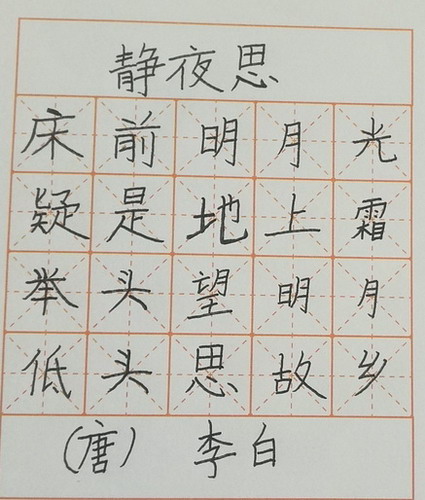 静夜思
床前明月光
疑是地上霜
举头望明月
低头思故乡
（唐） 李白